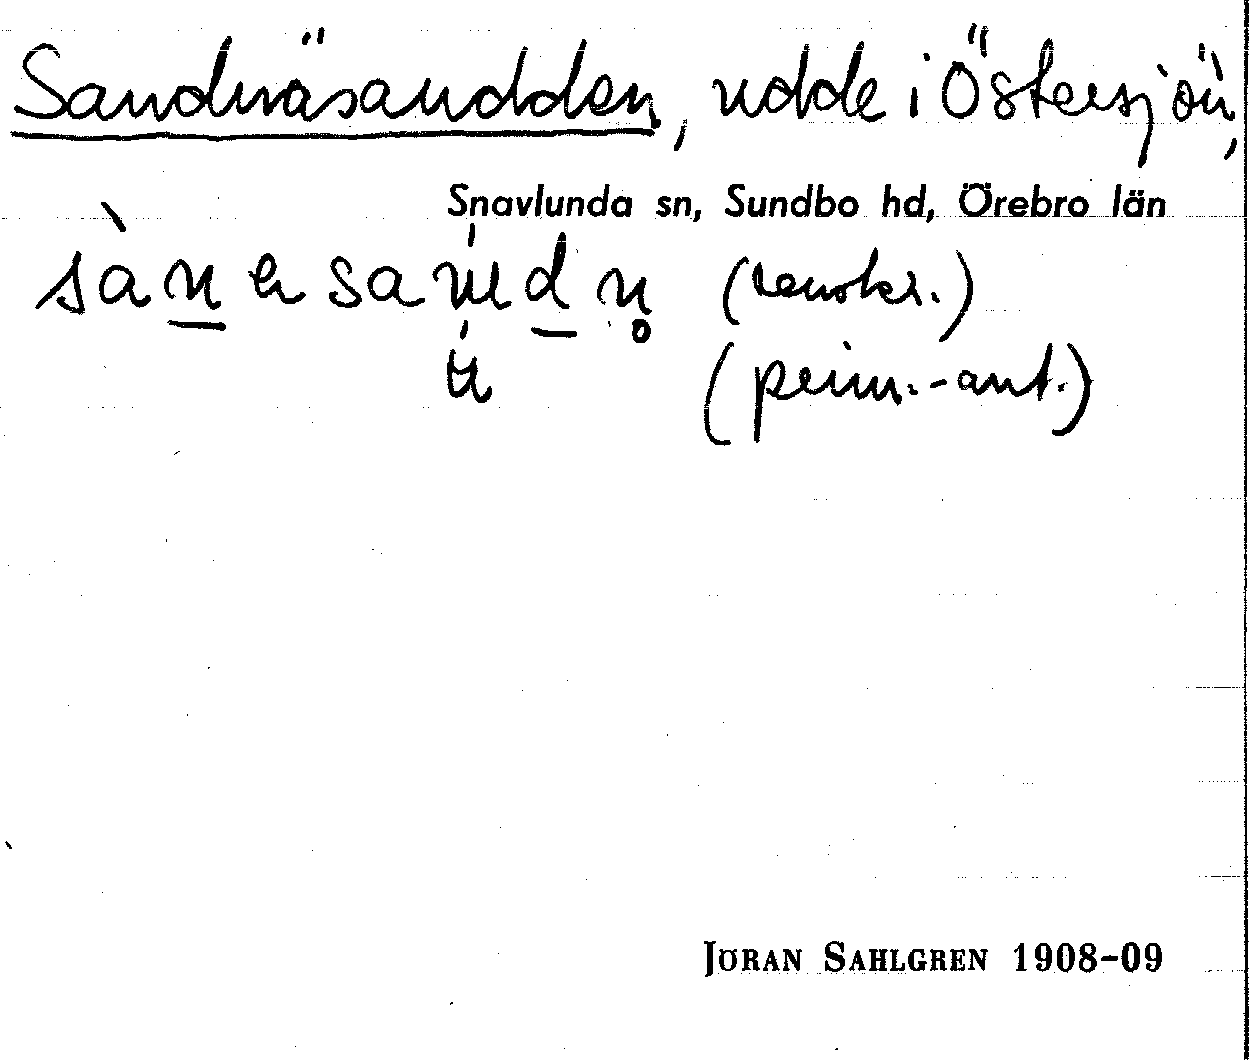 Sandnäsaudden, udde i Östersjön,
Snavlunda sn, Sundbo hd, Örebro län
(renskr.)
(prim.-ant.)
JÖRAN SAHLGREN 1908-09